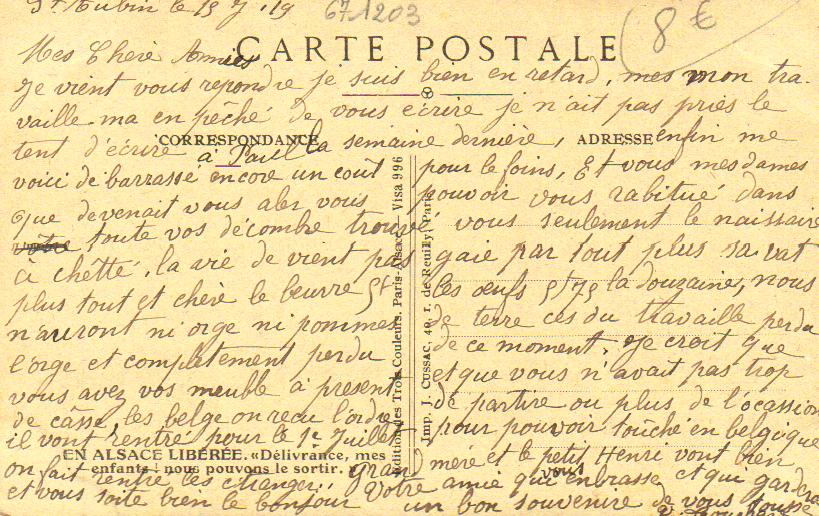 St Aubin le 15 7. 19
671203
8 €
Mes Chere Amies
CARTE POSTALE
Je vient vous repondre je suis bien en retard, mes mon tra-
vaille ma en pêché de vous ecrire je n'ait pas priès le
tent d'écrire à Paul la semaine dernière, enfin me
CORRESPONDANCE
ADRESSE
voici de barrassé encore un cout pour le foins, Et vous mesdames
que devenait vous aler vous pouvoir vous rabitué dans
toute vos décombre trouvé vous seulement le naissaire
à chètté, la vie de vient pas gaie par tout plus sa vat
plus tout et chère le beurre 5f les œufs 5f75 la douzaine, nous
n'auront ni orge ni pommes de terre ces du travaille perdu
l'orge et completement perdu de ce moment. Je croit que
vous avez vos meuble à présent et que vous n'avait pas trop
de câsse, les belge on recu l'ordre de partire ou plus de l'ocassion
il vont rentré pour le 1e Juillet pour pouvoir touché en belgique
EN ALSACE LIBÉRÉE. «Délivrance, mes
enfants ! nous pouvons le sortir.
on fait rentré les étranger. grand mere et le petit Henri vont bien
et vous soite bien le bonjour Votre amie qui vous enbrasse et que gardera
un bon souvenire de vous tousse
Edition des Trois Couleurs. Paris-Alsace — Visa 996
Imp. J. CUSSAC, 40, r. de Reuilly, Paris